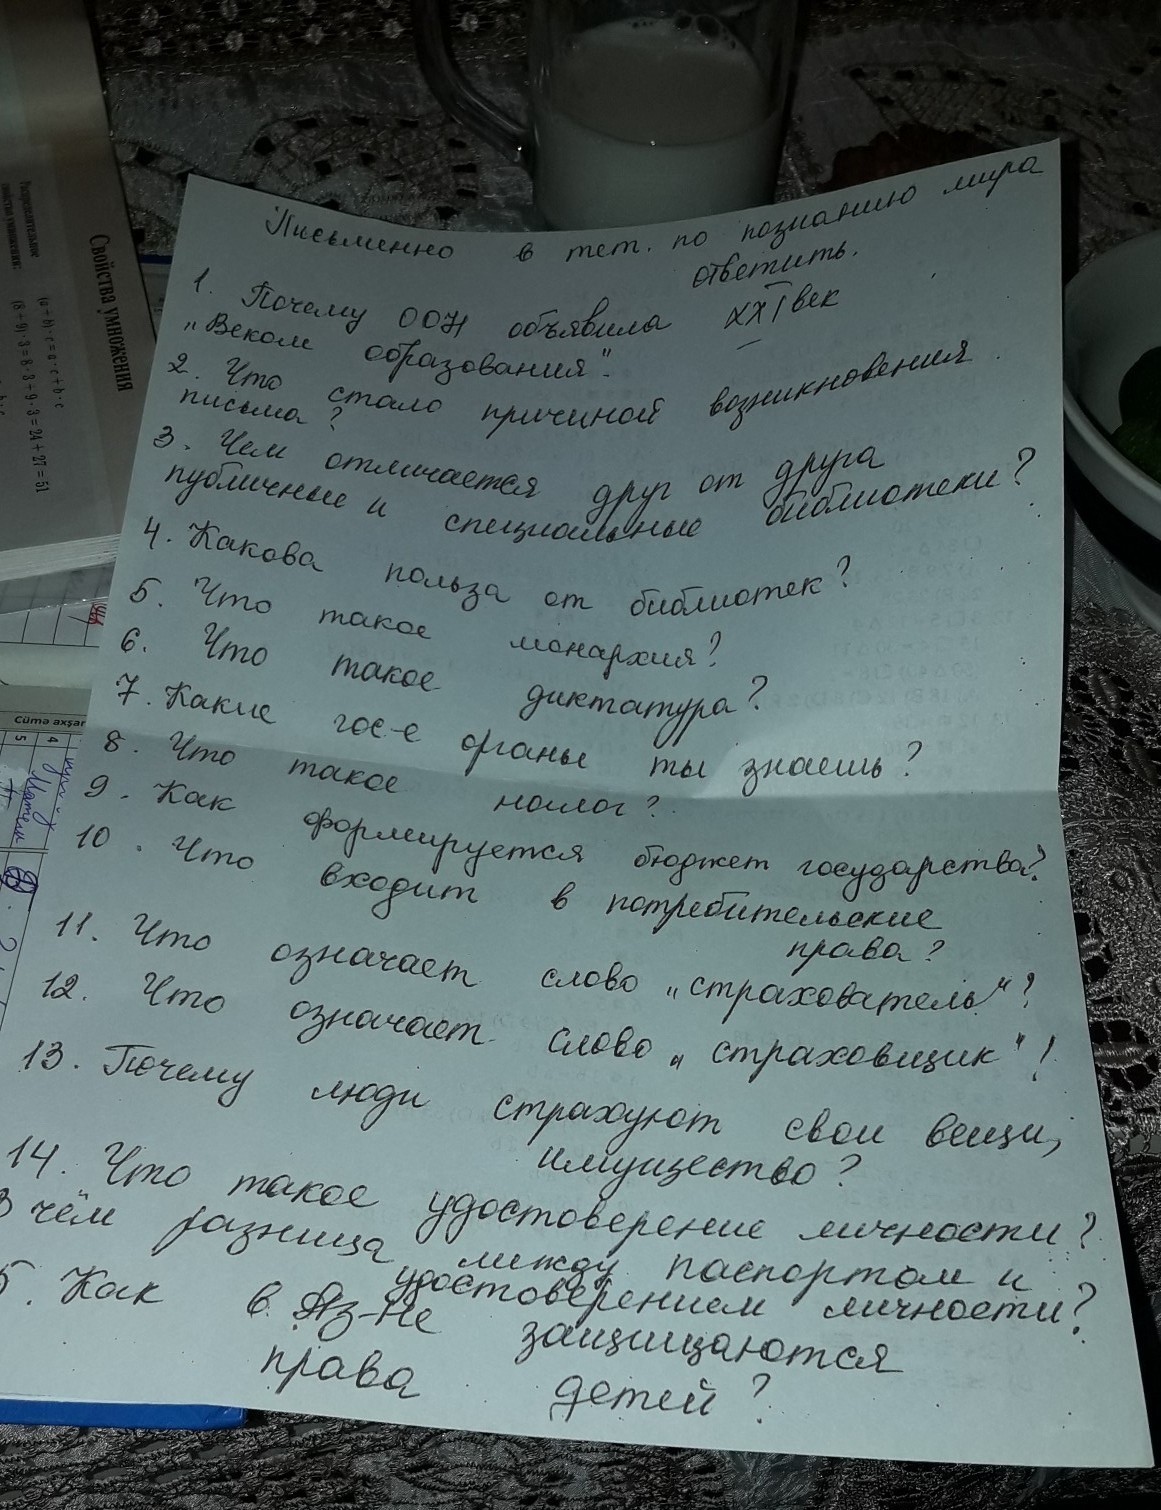 Свойства умножения
Распределительное
свойство умножения:
(a + b) · c = a · c + b · c
(8 + 9) · 3 = 8 · 3 + 9 · 3 = 24 + 27 = 51
Письменно в тет. по познанию мира
ответить.
1. Почему ООН объявила XXI век
"Веком образования".
2. Что стало причиной возникновения
письма?
3. Чем отличается друг от друга
публичные и специальные библиотеки?
4. Какова польза от библиотек?
5. Что такое монархия?
6. Что такое диктатура?
7. Какие гос-е органы ты знаешь?
8. Что такое налог?
9. Как формируется бюджет государства?
10. Что входит в потребительские
права?
11. Что означает слово "страхователь"?
12. Что означает слово "страховщик"?
13. Почему люди страхуют свои вещи,
имущество?
14. Что такое удостоверение личности?
В чём разница между паспортом и
удостоверением личности?
5. Как в Аз-не защищаются
права детей?
Cümə axşa
4
5